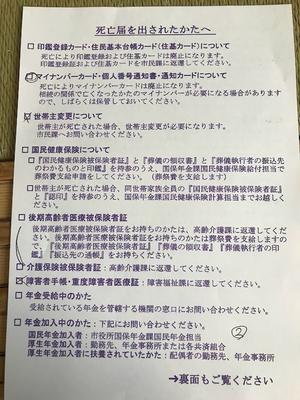 死亡届を出されたかたへ
□ 印鑑登録カード・住民基本台帳カード(住基カード)について
死亡により印鑑登録および住基カードは廃止になります。
印鑑登録証および住基カードを市民課に返還してください。
マイナンバーカード・個人番号通知書・通知カードについて
死亡によりマイナンバーカードは廃止になります。
相続の関係で亡くなったかたのマイナンバーが必要になる場合があります
ので、しばらくは保管しておいてください。
世帯主変更について
世帯主が死亡された場合、世帯主変更が必要になります。
市民課へお問い合わせください。
□ 国民健康保険について
□『国民健康保険被保険者証』と『葬儀の領収書』と『葬儀執行者の振込先
のわかるものと印鑑』を持参のうえ、国保年金課国民健康保険給付担当で
葬祭費支給申請をしてください。(葬祭費を支給します)
□世帯主が死亡された場合、同世帯家族全員の『国民健康保険被保険者証』
と『認印』を持参のうえ、国保年金課国民健康保険計算担当までお越しく
ださい。
□ 後期高齢者医療被保険者証
後期高齢者医療被保険者証をお持ちのかたは、高齢介護課に返還してくださ
い。後期高齢者医療被保険者証をお持ちのかたは葬祭費を支給しますの
で、『後期高齢者医療被保険者証』『葬儀の領収書』『葬儀執行者の印
鑑』『振込先の通帳』をお持ちください。
□ 介護保険被保険者証:高齢介護課に返還してください。
障害者手帳・重度障害者医療証:障害福祉課に返還してください。
□ 年金受給中のかた
受給されている年金を管轄する機関の窓口にお問い合わせください。
□ 年金加入中のかた:下記にお問い合わせください。
国民年金加入者:市役所国保年金課国民年金担当
厚生年金加入者:勤務先、年金事務所または各共済組合
厚生年金加入者に扶養されていたかた:配偶者の勤務先、年金事務所
②
→裏面もご覧ください